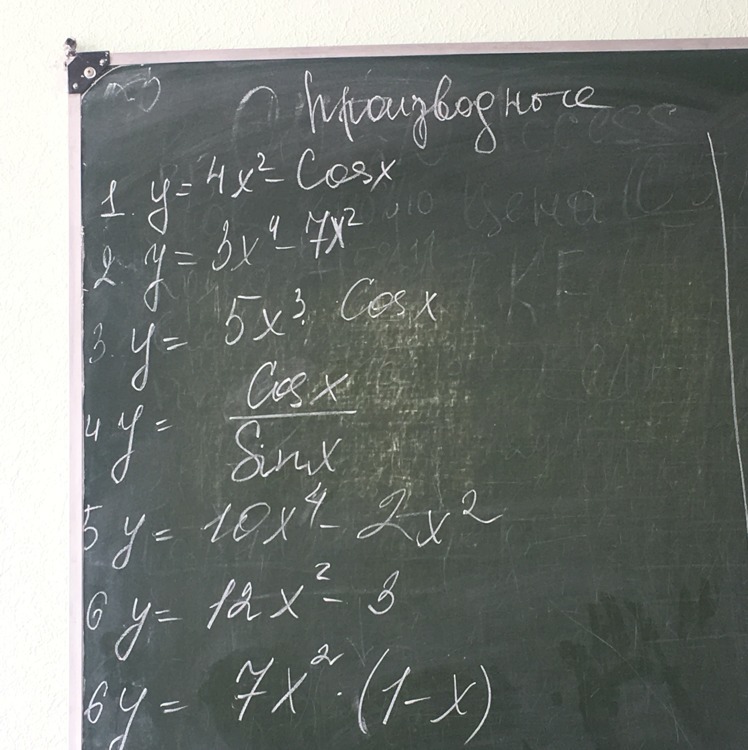 Производные
1. y = 4x² - Cosx
2 y = 3x⁴ - 7x²
3. y = 5x³ · Cosx
4 y = Cosx / Sinx
5 y = 10x⁴ - 2x²
6 y = 12x² - 3
6 y = 7x² · (1 - x)